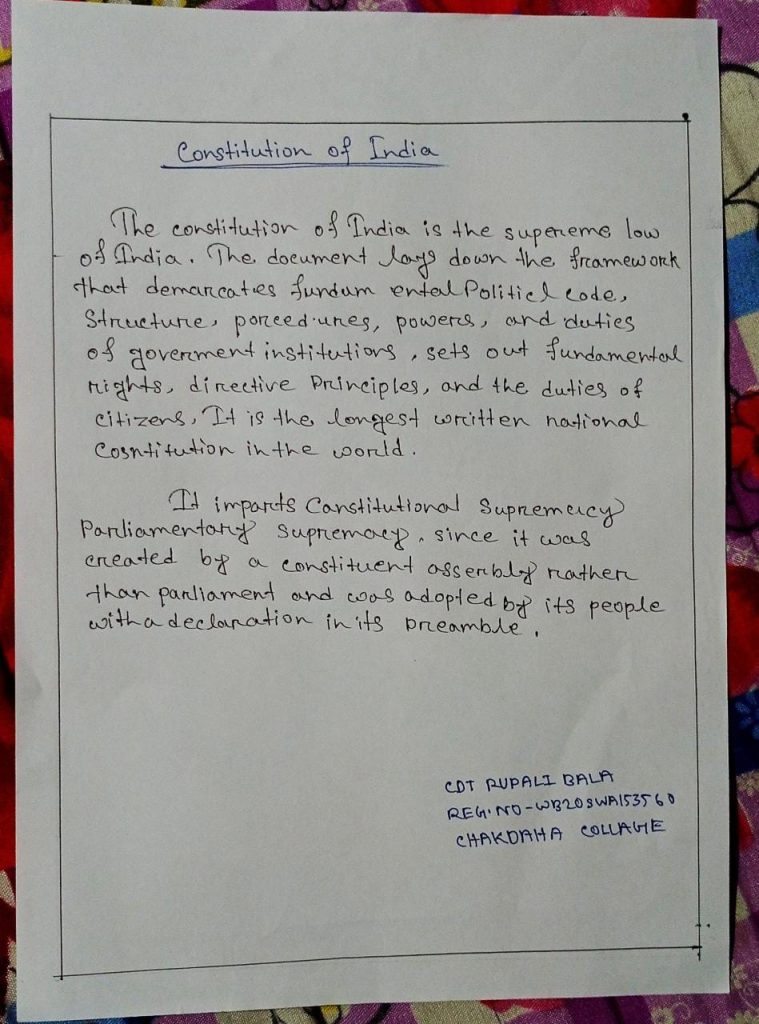 Constitution of India
The constitution of India is the supereme low
of India. The document lays down the framework
that demarcates fundum ental Politicl code,
Structure, porceedures, powers, and duties
of goverment institutions, sets out fundamental
rights, directive Principles, and the duties of
citizens, It is the longest written national
Cosntitution in the world.
It imparts Canstitutional Supremecy
Parliamentary supremacy, since it was
created by a constituent assembly rather
than parliament and was adopted by its people
with a declaration in its preamble.
CDT RUPALI BALA
REG.NO-WB20SWA153560
CHAKDAHA COLLAGE